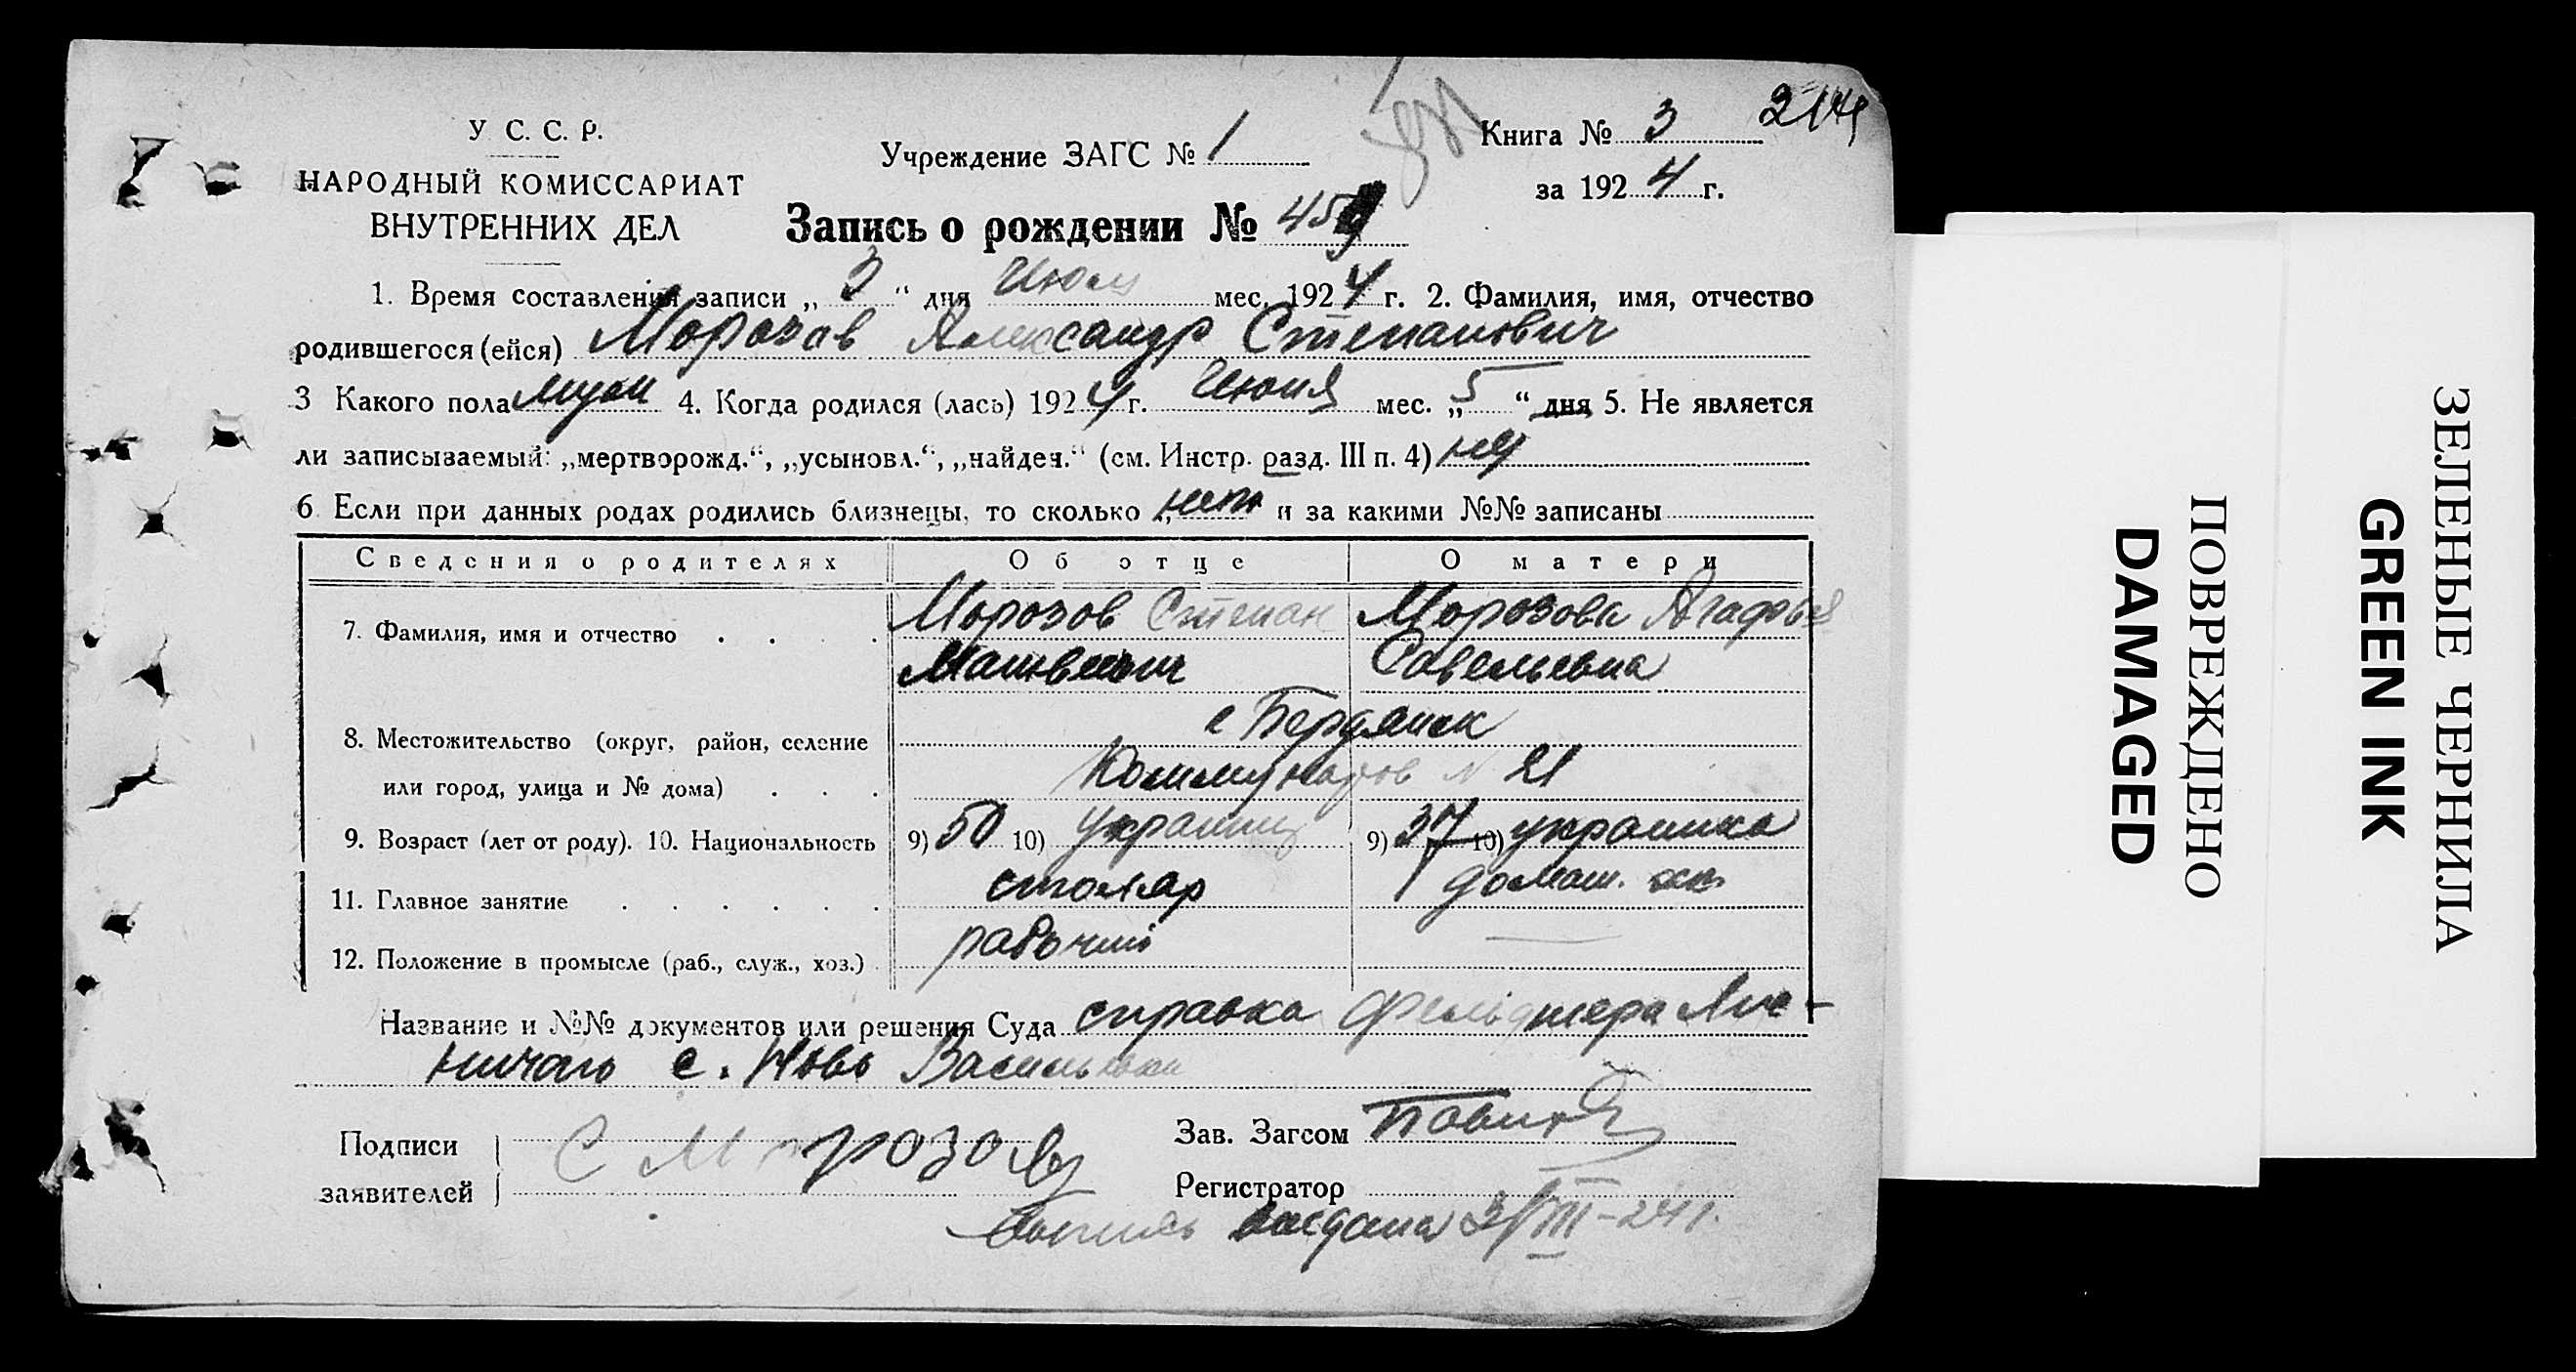 У С. С. Р.
НАРОДНЫЙ КОМИССАРИАТ
ВНУТРЕННИХ ДЕЛ
Учреждение ЗАГС № 1
Книга № 3
за 1924 г.
Запись о рождении № 459
1. Время составления записи „ 3 “ дня Июля мес. 1924 г. 2. Фамилия, имя, отчество
родившегося (ейся) Морозов Александр Степанович
3 Какого пола муж 4. Когда родился (лась) 1924 г. Июня мес. „ 5 “ дня 5. Не является
ли записываемый: „мертворожд.“, „усыновл.“, „найден.“ (см. Инстр. разд. III п. 4) нет
6. Если при данных родах родились близнецы, то сколько „ нет и за какими №№ записаны
Сведения о родителях Об отце О матери
7. Фамилия, имя и отчество . . . . Морозов Степан Морозова Агафья
Матвеевич Савельевна
8. Местожительство (округ, район, селение г Бердянск
или город, улица и № дома) . . . Коммунаров N 21
9. Возраст (лет от роду). 10. Национальность 9) 50 10) украинц 9) 37 10) украинка
11. Главное занятие . . . . . . столяр домаш. хоз
12. Положение в промысле (раб., служ., хоз.) . рабочий —
Название и №№ документов или решения Суда справка фельдшера
с. Ново Васильевки
Подписи
заявителей
С Морозов
Зав. Загсом
Регистратор
Выпись выдана 3/VIII-24 г.
ПОВРЕЖДЕНО
DAMAGED
ЗЕЛЕНЫЕ ЧЕРНИЛА
GREEN INK